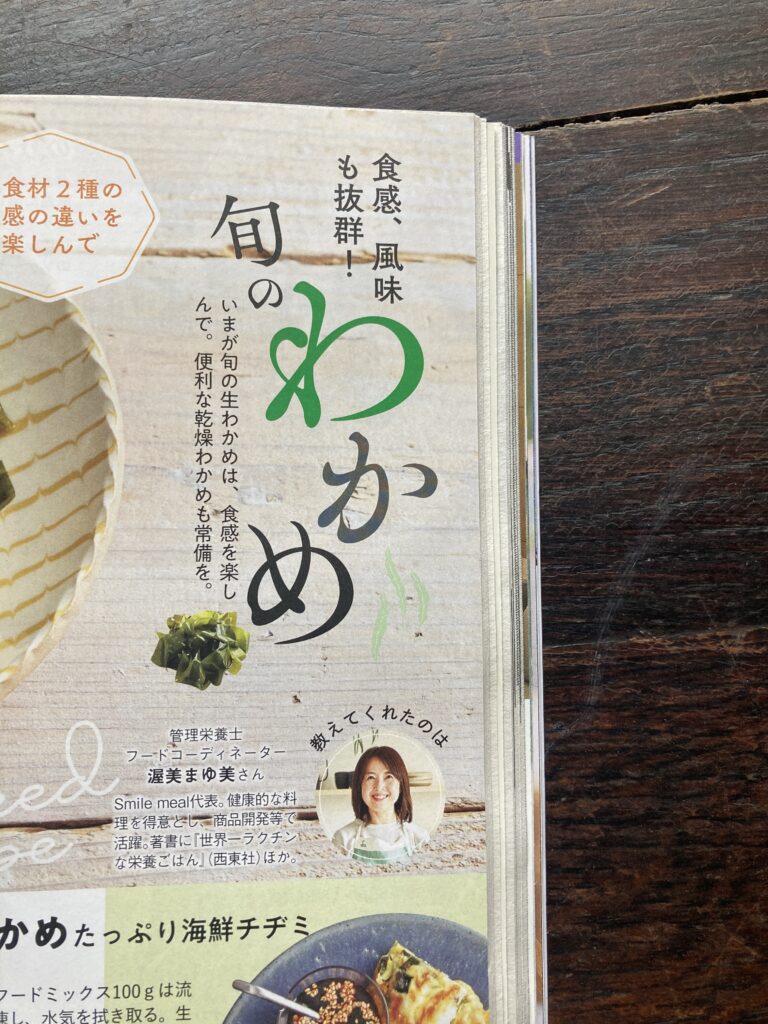 食材2種の
感の違いを
楽しんで
食感、風味
も抜群！
旬の
わかめ
いまが旬の生わかめは、食感を楽し
んで。便利な乾燥わかめも常備を。
教えてくれたのは
管理栄養士
フードコーディネーター
渥美まゆ美さん
Smile meal代表。健康的な料
理を得意とし、商品開発等で
活躍。著書に『世界一ラクチン
な栄養ごはん』（西東社）ほか。
かめたっぷり海鮮チヂミ
フードミックス100gは流
東し、水気を拭き取る。生